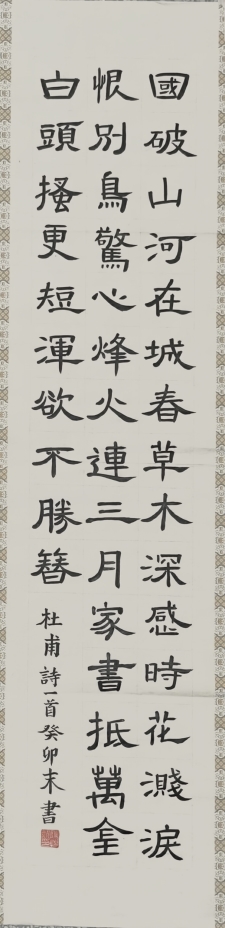 國破山河在城春草木深感時花濺淚
恨別鳥驚心烽火連三月家書抵萬金
白頭搔更短渾欲不勝簪
杜甫詩一首癸卯末書